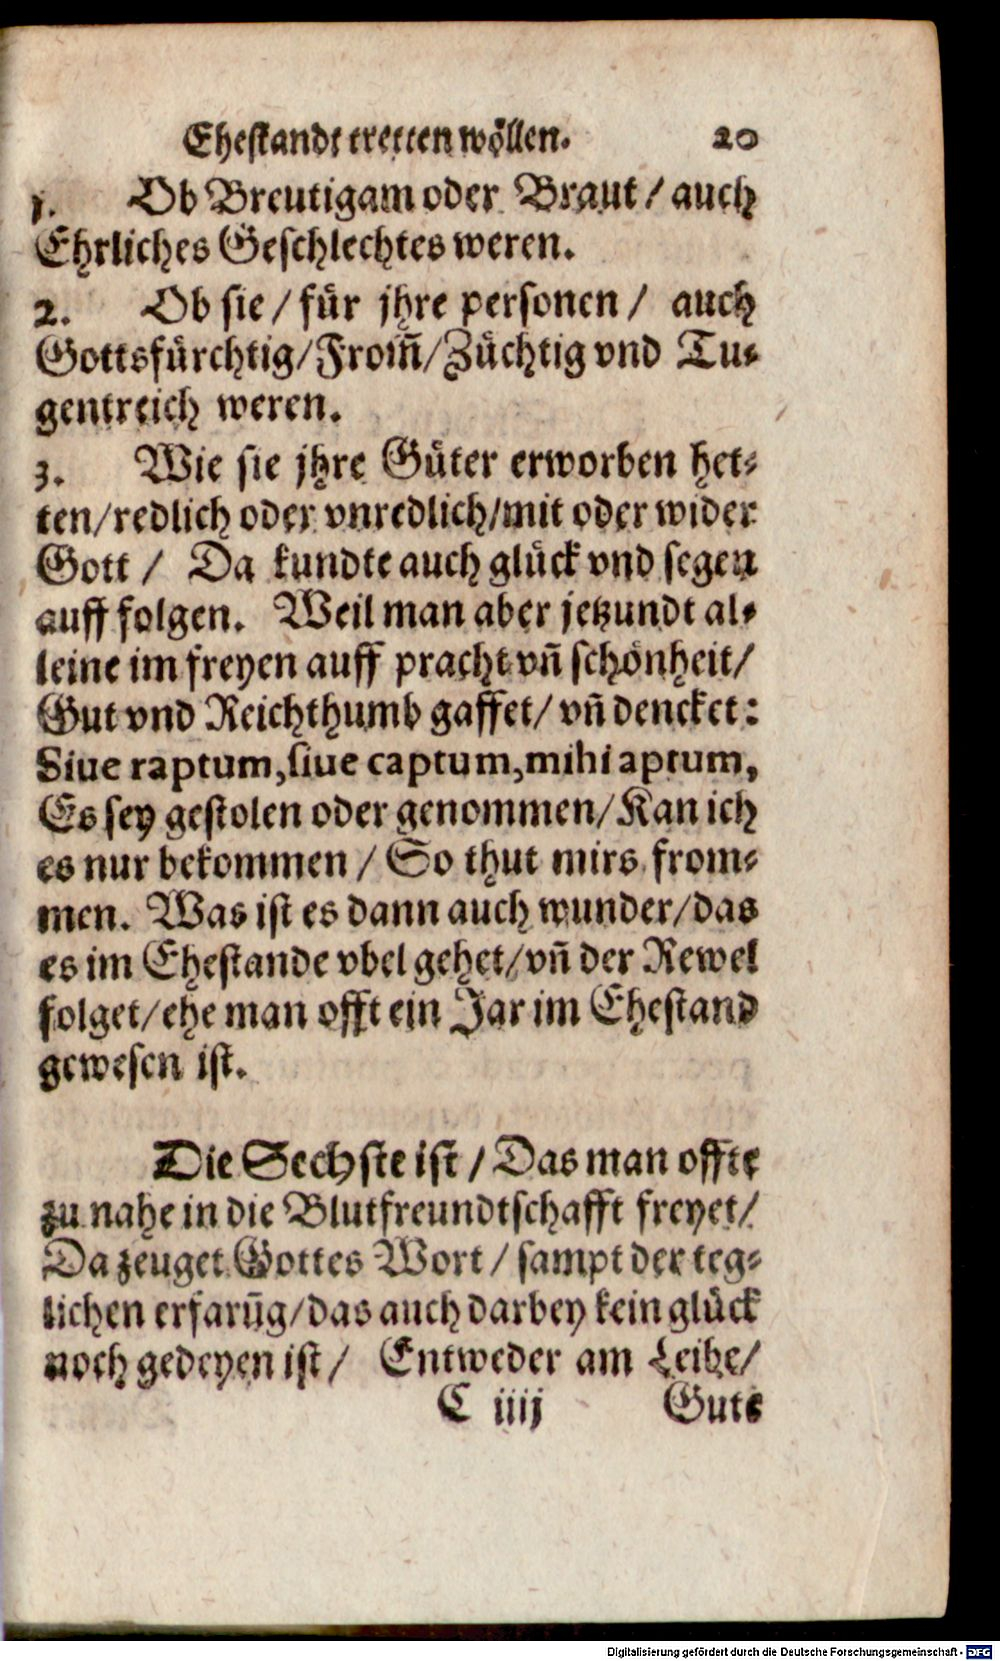 Ehestandt tretten wöllen. 20
1. Ob Breutigam oder Braut / auch
Ehrliches Geschlechtes weren.
2. Ob sie / für jhre personen / auch
Gottsfürchtig/From̃/Züchtig vnd Tu-
gentreich weren.
3. Wie sie jhre Güter erworben het-
ten/redlich oder vnredlich/mit oder wider
Gott / Da kundte auch glück vnd segen
auff folgen. Weil man aber jetzundt al-
leine im freyen auff pracht vñ schönheit/
Gut vnd Reichthumb gaffet/ vñ dencket:
Siue raptum, siue captum, mihi aptum,
Es sey gestolen oder genommen/Kan ich
es nur bekommen / So thut mirs from-
men. Was ist es dann auch wunder/das
es im Ehestande vbel gehet/vñ der Rewel
folget/ehe man offt ein Jar im Ehestand
gewesen ist.
Die Sechste ist / Das man offte
zu nahe in die Blutfreundtschafft freyet/
Da zeuget Gottes Wort / sampt der teg-
lichen erfarũg/das auch darbey kein glück
noch gedeyen ist / Entweder am Leibe/
C iiij Guts
Digitalisierung gefördert durch die Deutsche Forschungsgemeinschaft - DFG